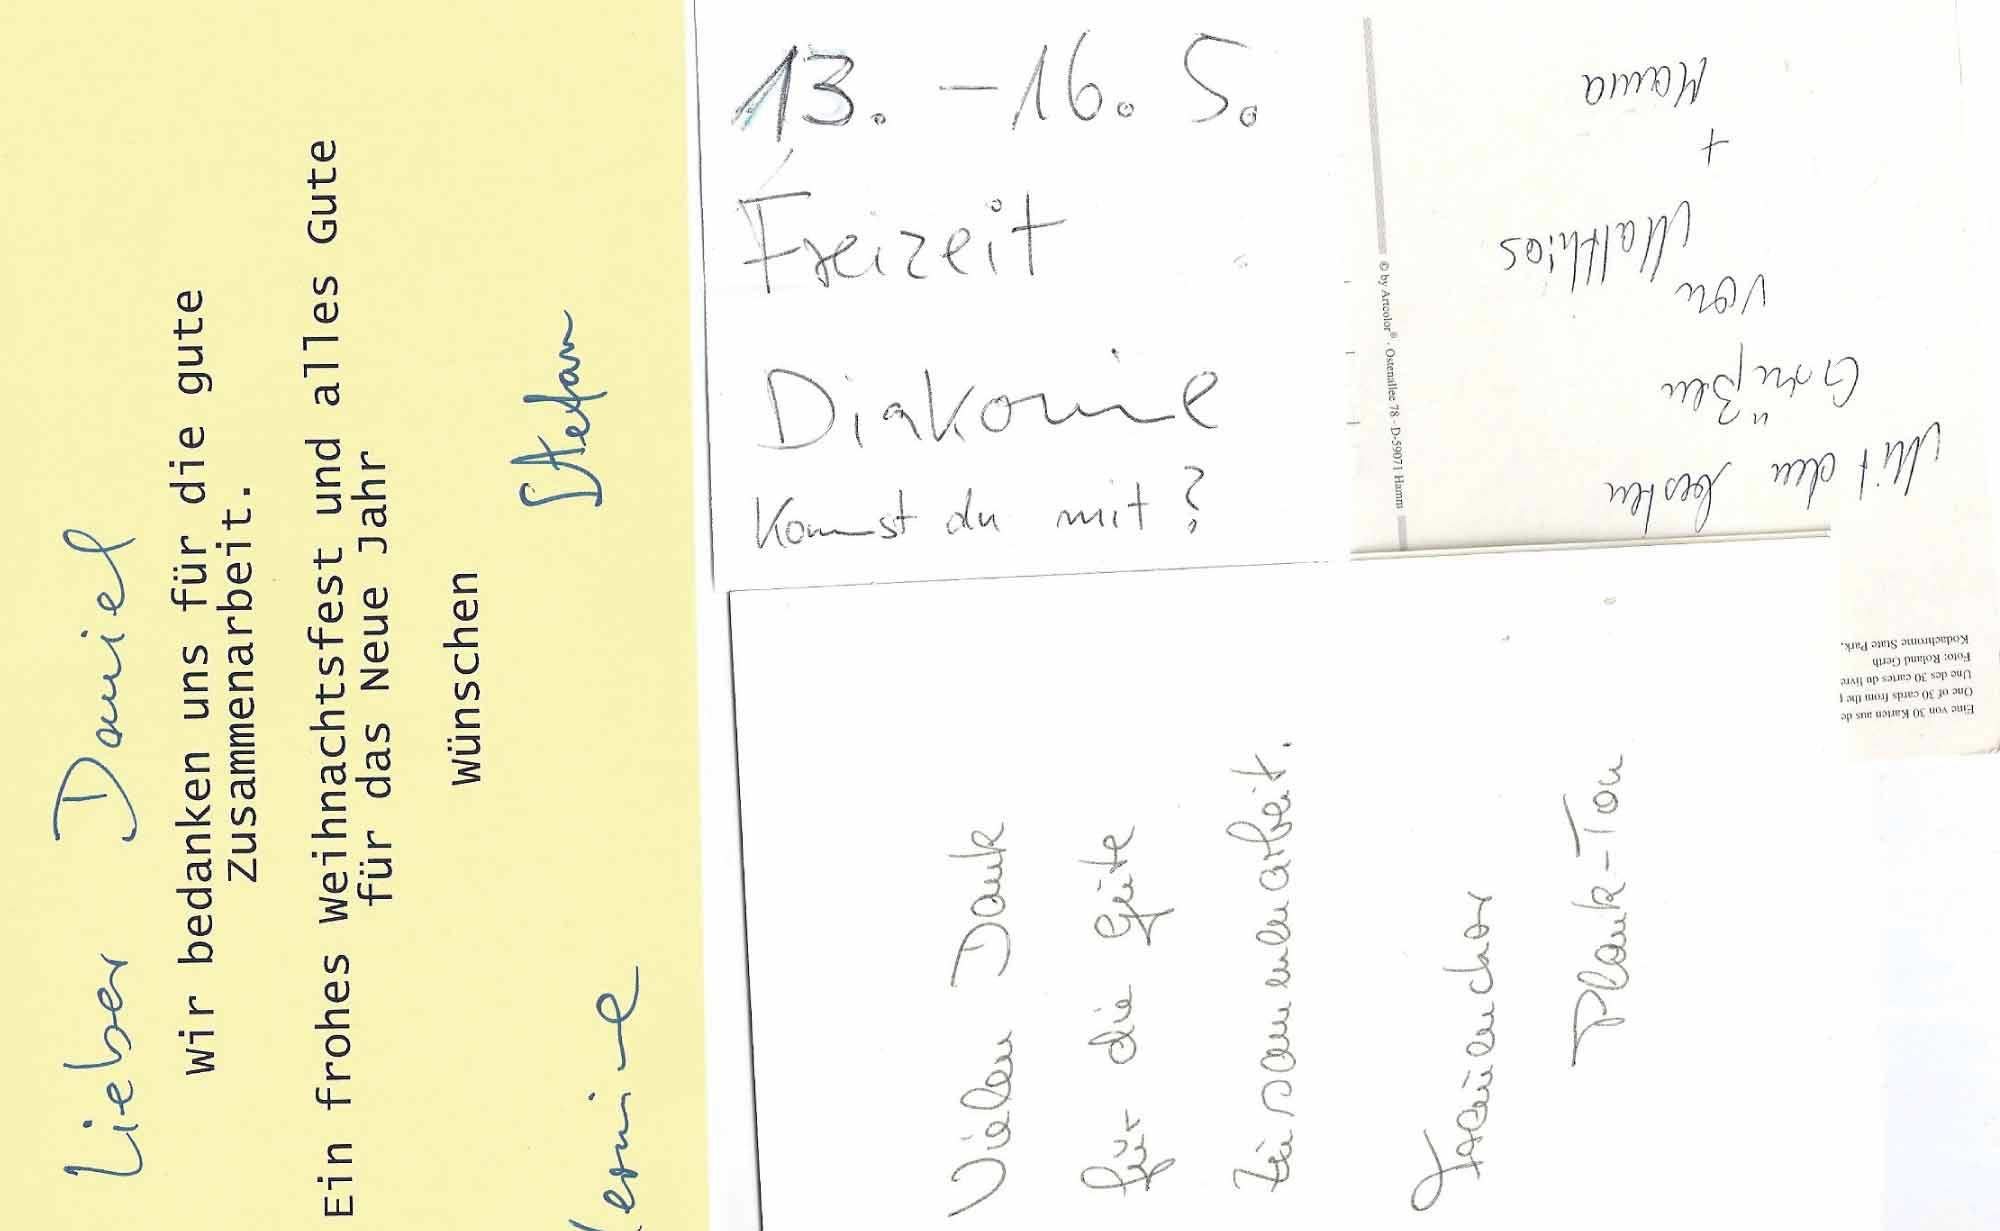 Lieber Daniel
wir bedanken uns für die gute
Zusammenarbeit.
Ein frohes Weihnachtsfest und alles Gute
für das Neue Jahr
wünschen
Stefan
13. - 16. 5.
Freizeit
Diakonie
Kommst du mit?
Mit den besten
Grüßen
von
Matthias
+
© by Artcolor® · Ostenallee 78 · D-59071 Hamm
Eine von 30 Karten aus de
One of 30 cards from the
Une des 30 cartes du livre
Foto: Roland Gerth
Kodachrome State Park.
Vielen Dank
für die gute
Zusammenarbeit.
Frauenchor
Plank-Ton